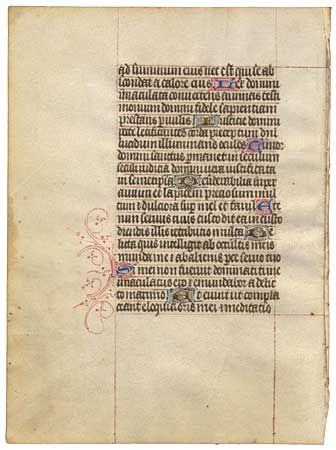 ad summum eius nec est qui se ab
scondat a calore eius Lex domini
inmaculata convertens animas testi
monium domini fidele sapientiam
prestans parvulis Iusticie domini
recte letificantes corda preceptum dni
lucidum illuminans oculos Timor
domini sanctus permanet in seculum
seculi iudicia domini vera iustificata
in semetipsa Desiderabilia super
aurum et lapidem preciosum mul
tum et dulciora sup mel et favum Ete
nim servus tuus custodit ea in custo
diendis illis retributio multa De
licta quis intelligit ab occultis meis
munda me et ab alienis parce servo tuo
Si mei non fuerint dominati tunc in
maculatus ero et emundabor a delic
to maximo Et erunt ut compla
ceant eloquia oris mei et meditatio